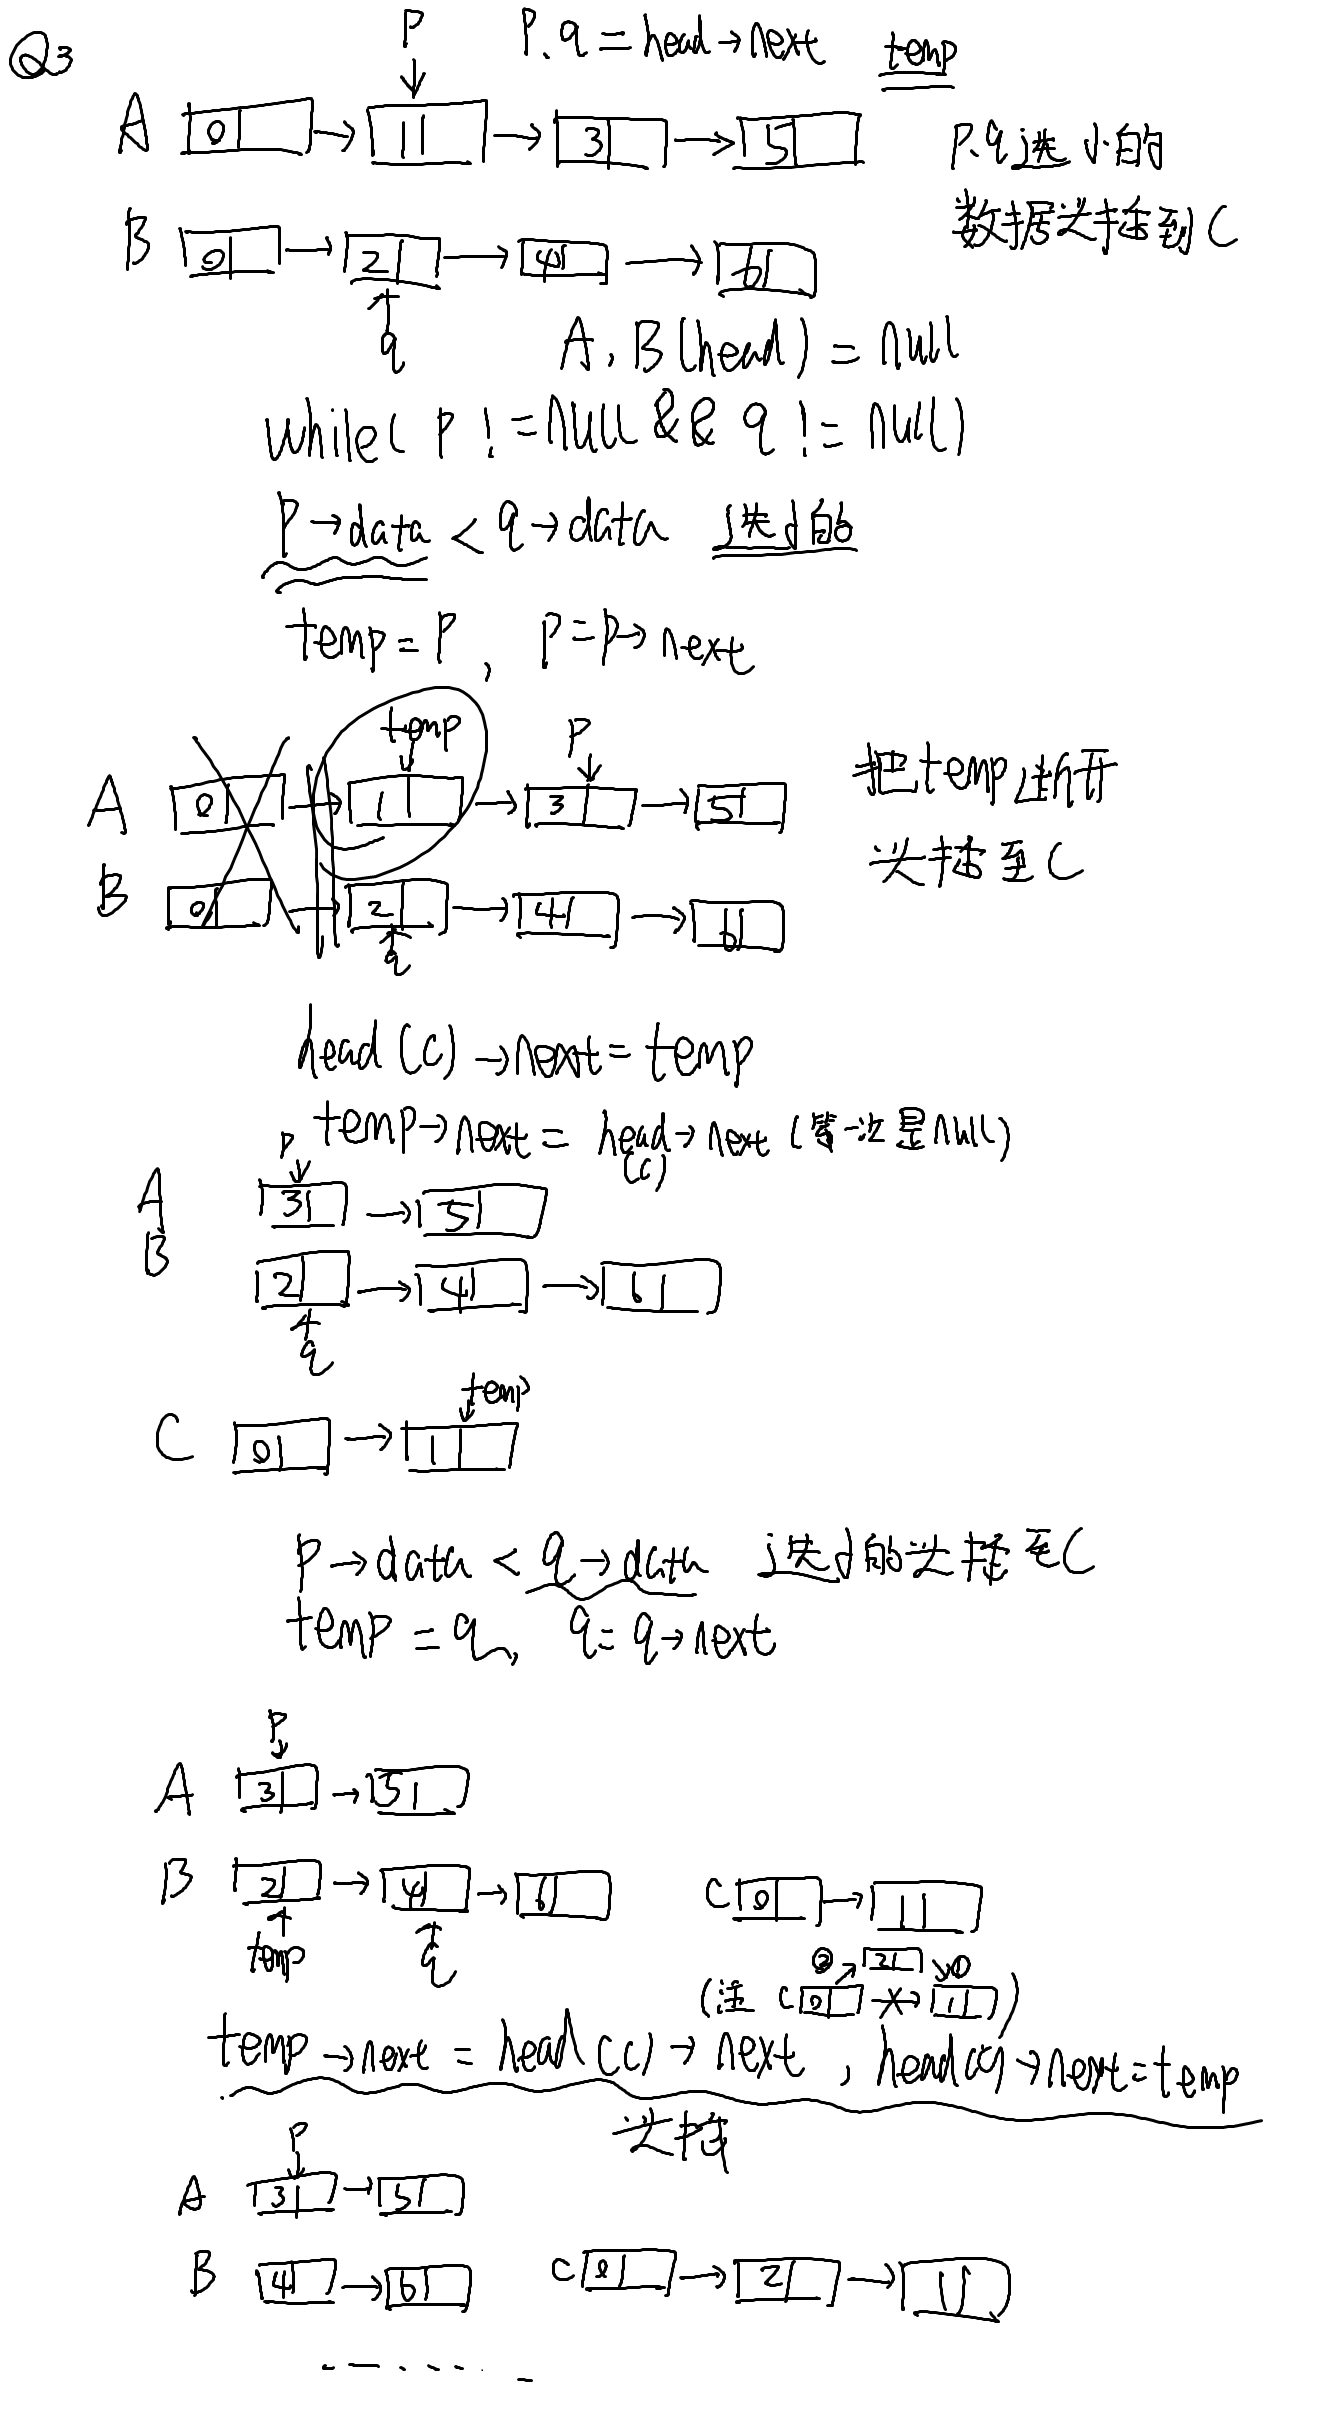 Q3
P
P.q = head→next temp
A 0 → 1 → 3 → 5
P.q选小的
数据头插到C
B 0 → 2 → 4 → 6
q
A, B(head) = null
while( P != NULL && q != null)
P→data < q→data 选小的
temp = P, P=P→next
temp P
A 0 → 1 → 3 → 5
B 0 → 2 → 4 → 6
q
把temp断开
头插至C
head(C)→next = temp
temp→next = head(C)→next (第一次是null)
P
A 3 → 5
B 2 → 4 → 6
q
temp
C 0 → 1
P→data < q→data 选小的头插至C
temp = q, q = q→next
P
A 3 → 5
B 2 → 4 → 6
temp q
C 0 → 1
② 2 ①
(注 C 0 → 1)
temp→next = head(C)→next , head(C)→next=temp
头插
P
A 3 → 5
B 4 → 6
C 0 → 2 → 1